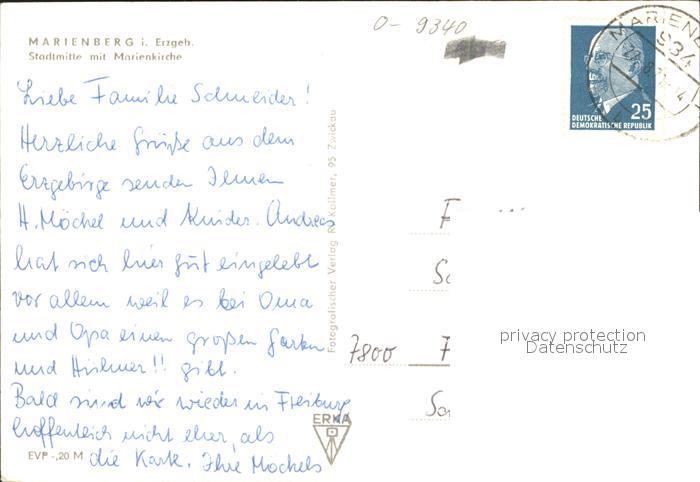 O- 9340
MARIENBERG i. Erzgeb.
Stadtmitte mit Marienkirche
MARIENB
934
DEUTSCHE
DEMOKRATISCHE REPUBLIK
25
Liebe Familie Schneider!
Herzliche Grüße aus dem
Erzgebirge senden Ihnen
H. Möckel und Kinder. Andreas
hat sich hier gut eingelebt
vor allem weil es bei Oma
und Opa einen großen Garten
und Hühner!! gibt.
Bald sind wir wieder in Freiburg
hoffentlich nicht eher, als
die Karte. Ihre Möckels
EVP -,20 M
Fotografischer Verlag R. Kallmer, 95 Zwickau
ERKA
F
Sc
7800
privacy protection
Datenschutz